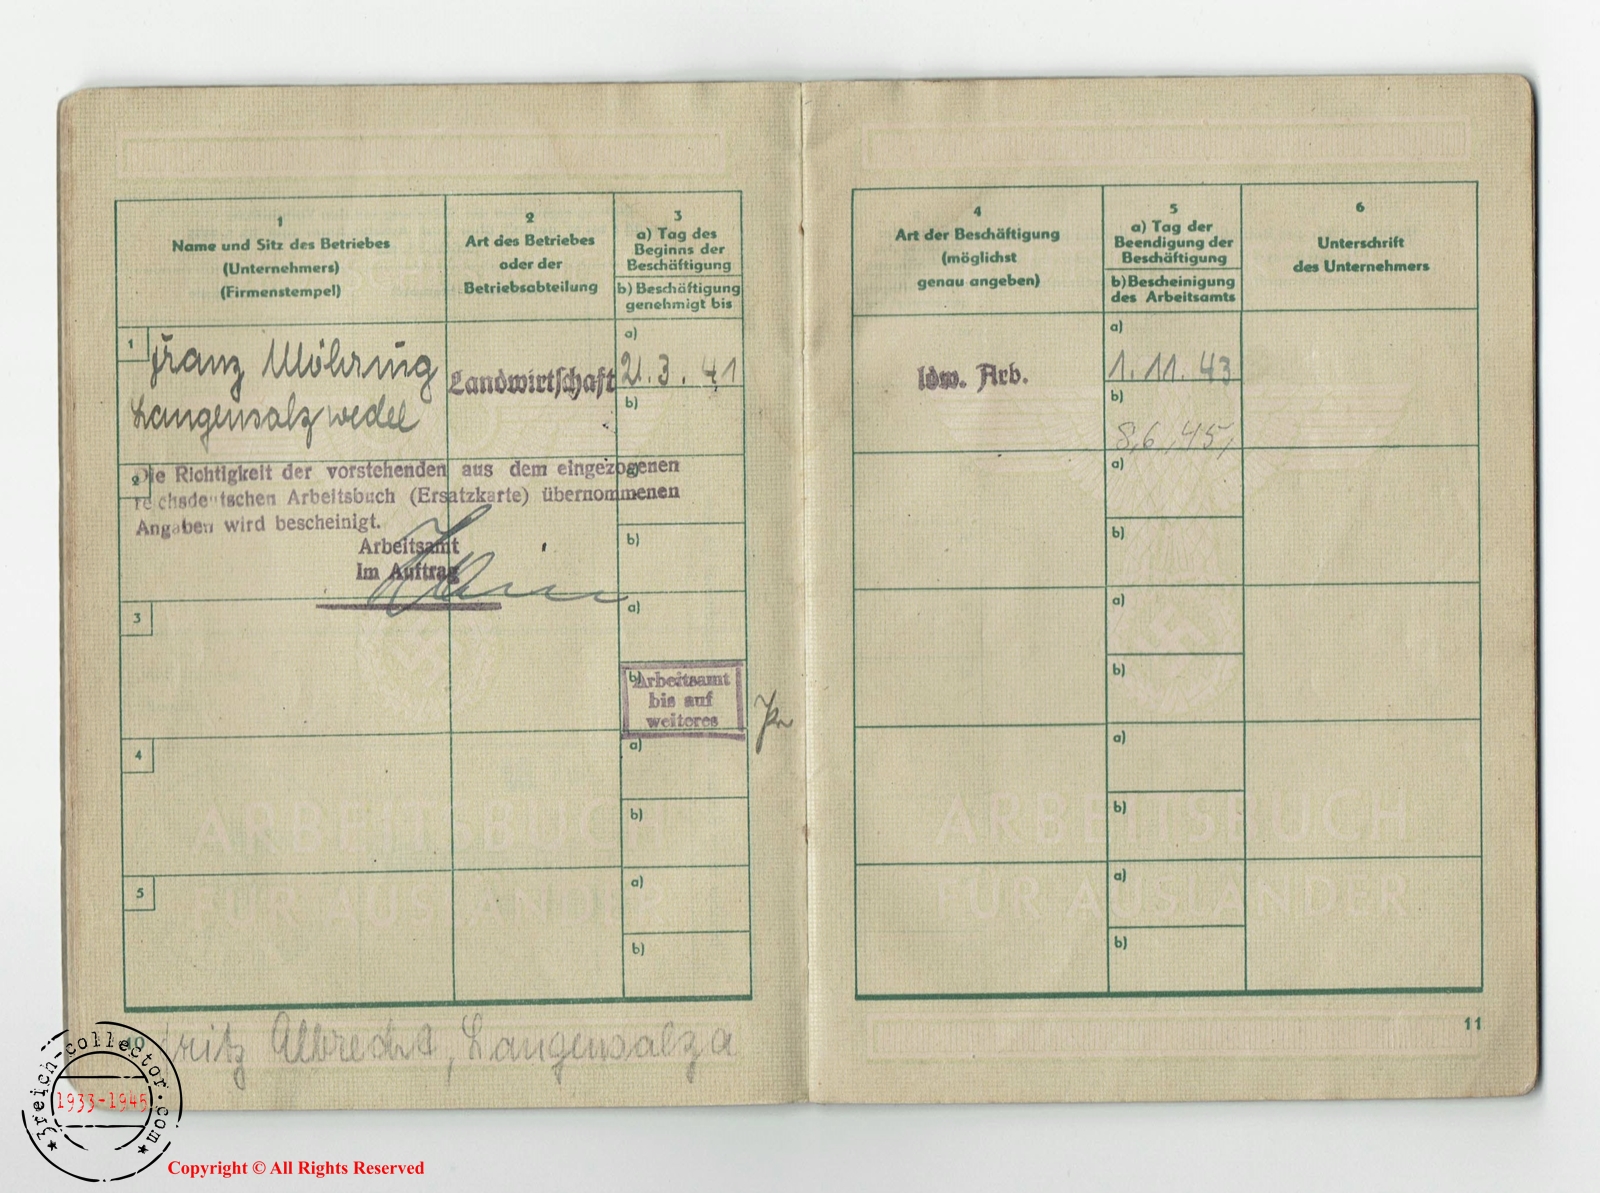 1
Name und Sitz des Betriebes
(Unternehmers)
(Firmenstempel)
2
Art des Betriebes
oder der
Betriebsabteilung
3
a) Tag des
Beginns der
Beschäftigung
b) Beschäftigung
genehmigt bis
1
Franz Möhring
Langensalzwedel
Landwirtschaft
a)
21.3.41
b)
2
a)
Die Richtigkeit der vorstehenden aus dem eingezogenen
reichsdeutschen Arbeitsbuch (Ersatzkarte) übernommenen
Angaben wird bescheinigt.
Arbeitsamt
Im Auftrag
b)
3
a)
b)
Arbeitsamt
bis auf
weiteres
4
a)
b)
5
a)
b)
ARBEITSBUCH
FÜR AUSLÄNDER
10
Fritz Albrecht, Langensalza
4
Art der Beschäftigung
(möglichst
genau angeben)
5
a) Tag der
Beendigung der
Beschäftigung
b) Bescheinigung
des Arbeitsamts
6
Unterschrift
des Unternehmers
ldw. Arb.
a)
1.11.43
b)
8.6.45.
a)
b)
a)
b)
a)
b)
a)
b)
ARBEITSBUCH
FÜR AUSLÄNDER
11
3reich-collector.com
1933-1945
Copyright © All Rights Reserved